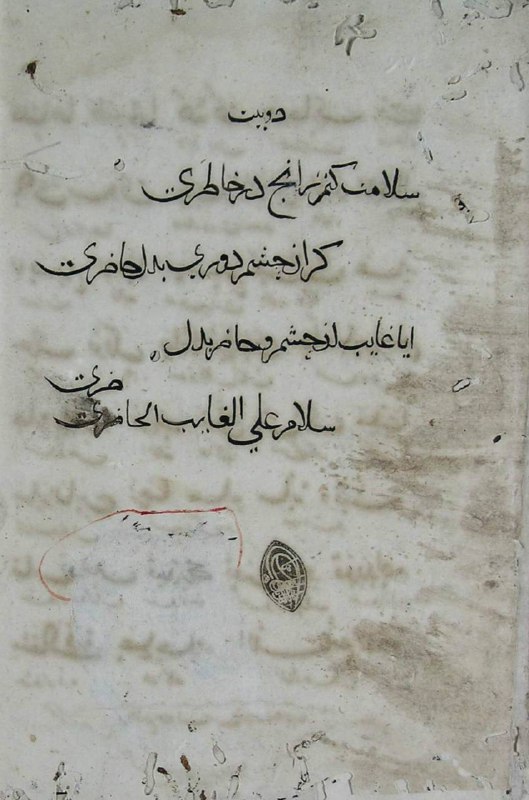 دوبیت
سلامت کنم زانج در خاطری
کر از چشم دوری بدل حاضری
ایا غایب از چشم و حاضر بدل
ضری
سلام علي الغایب الحاضری